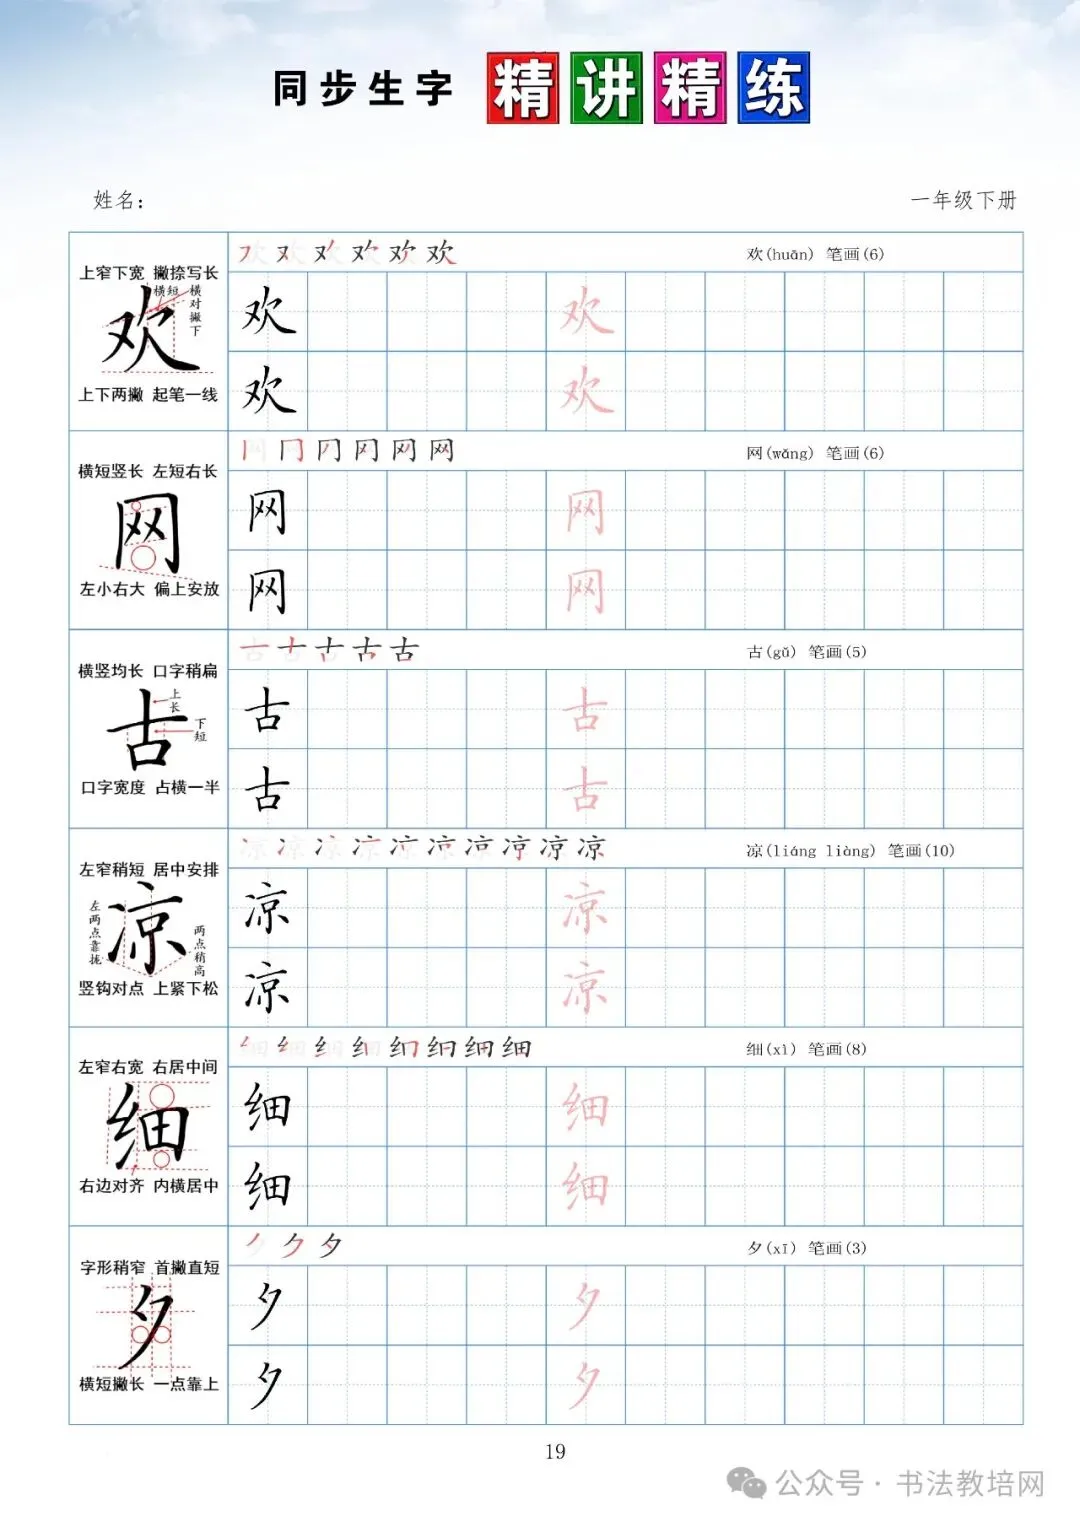 同步生字 精讲精练
姓名：
一年级下册
上窄下宽 撇捺写长
横短 横对撇下
欢
上下两撇 起笔一线
欢(huān) 笔画(6)
欢 欢
欢 欢
横短竖长 左短右长
网
左小右大 偏上安放
网(wǎng) 笔画(6)
网 网
网 网
横竖均长 口字稍扁
上长
古
下短
口字宽度 占横一半
古(gǔ) 笔画(5)
古 古
古 古
左窄稍短 居中安排
左两点靠拢
凉
两点稍高
竖钩对点 上紧下松
凉(liáng liàng) 笔画(10)
凉 凉
凉 凉
左窄右宽 右居中间
细
右边对齐 内横居中
细(xì) 笔画(8)
细 细
细 细
字形稍窄 首撇直短
夕
横短撇长 一点靠上
夕(xī) 笔画(3)
夕 夕
夕 夕
19
公众号·书法教培网